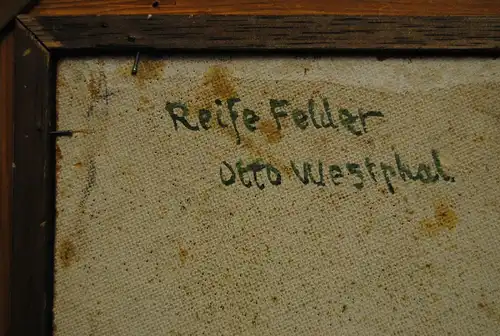 Reife Felder
Otto Westphal.